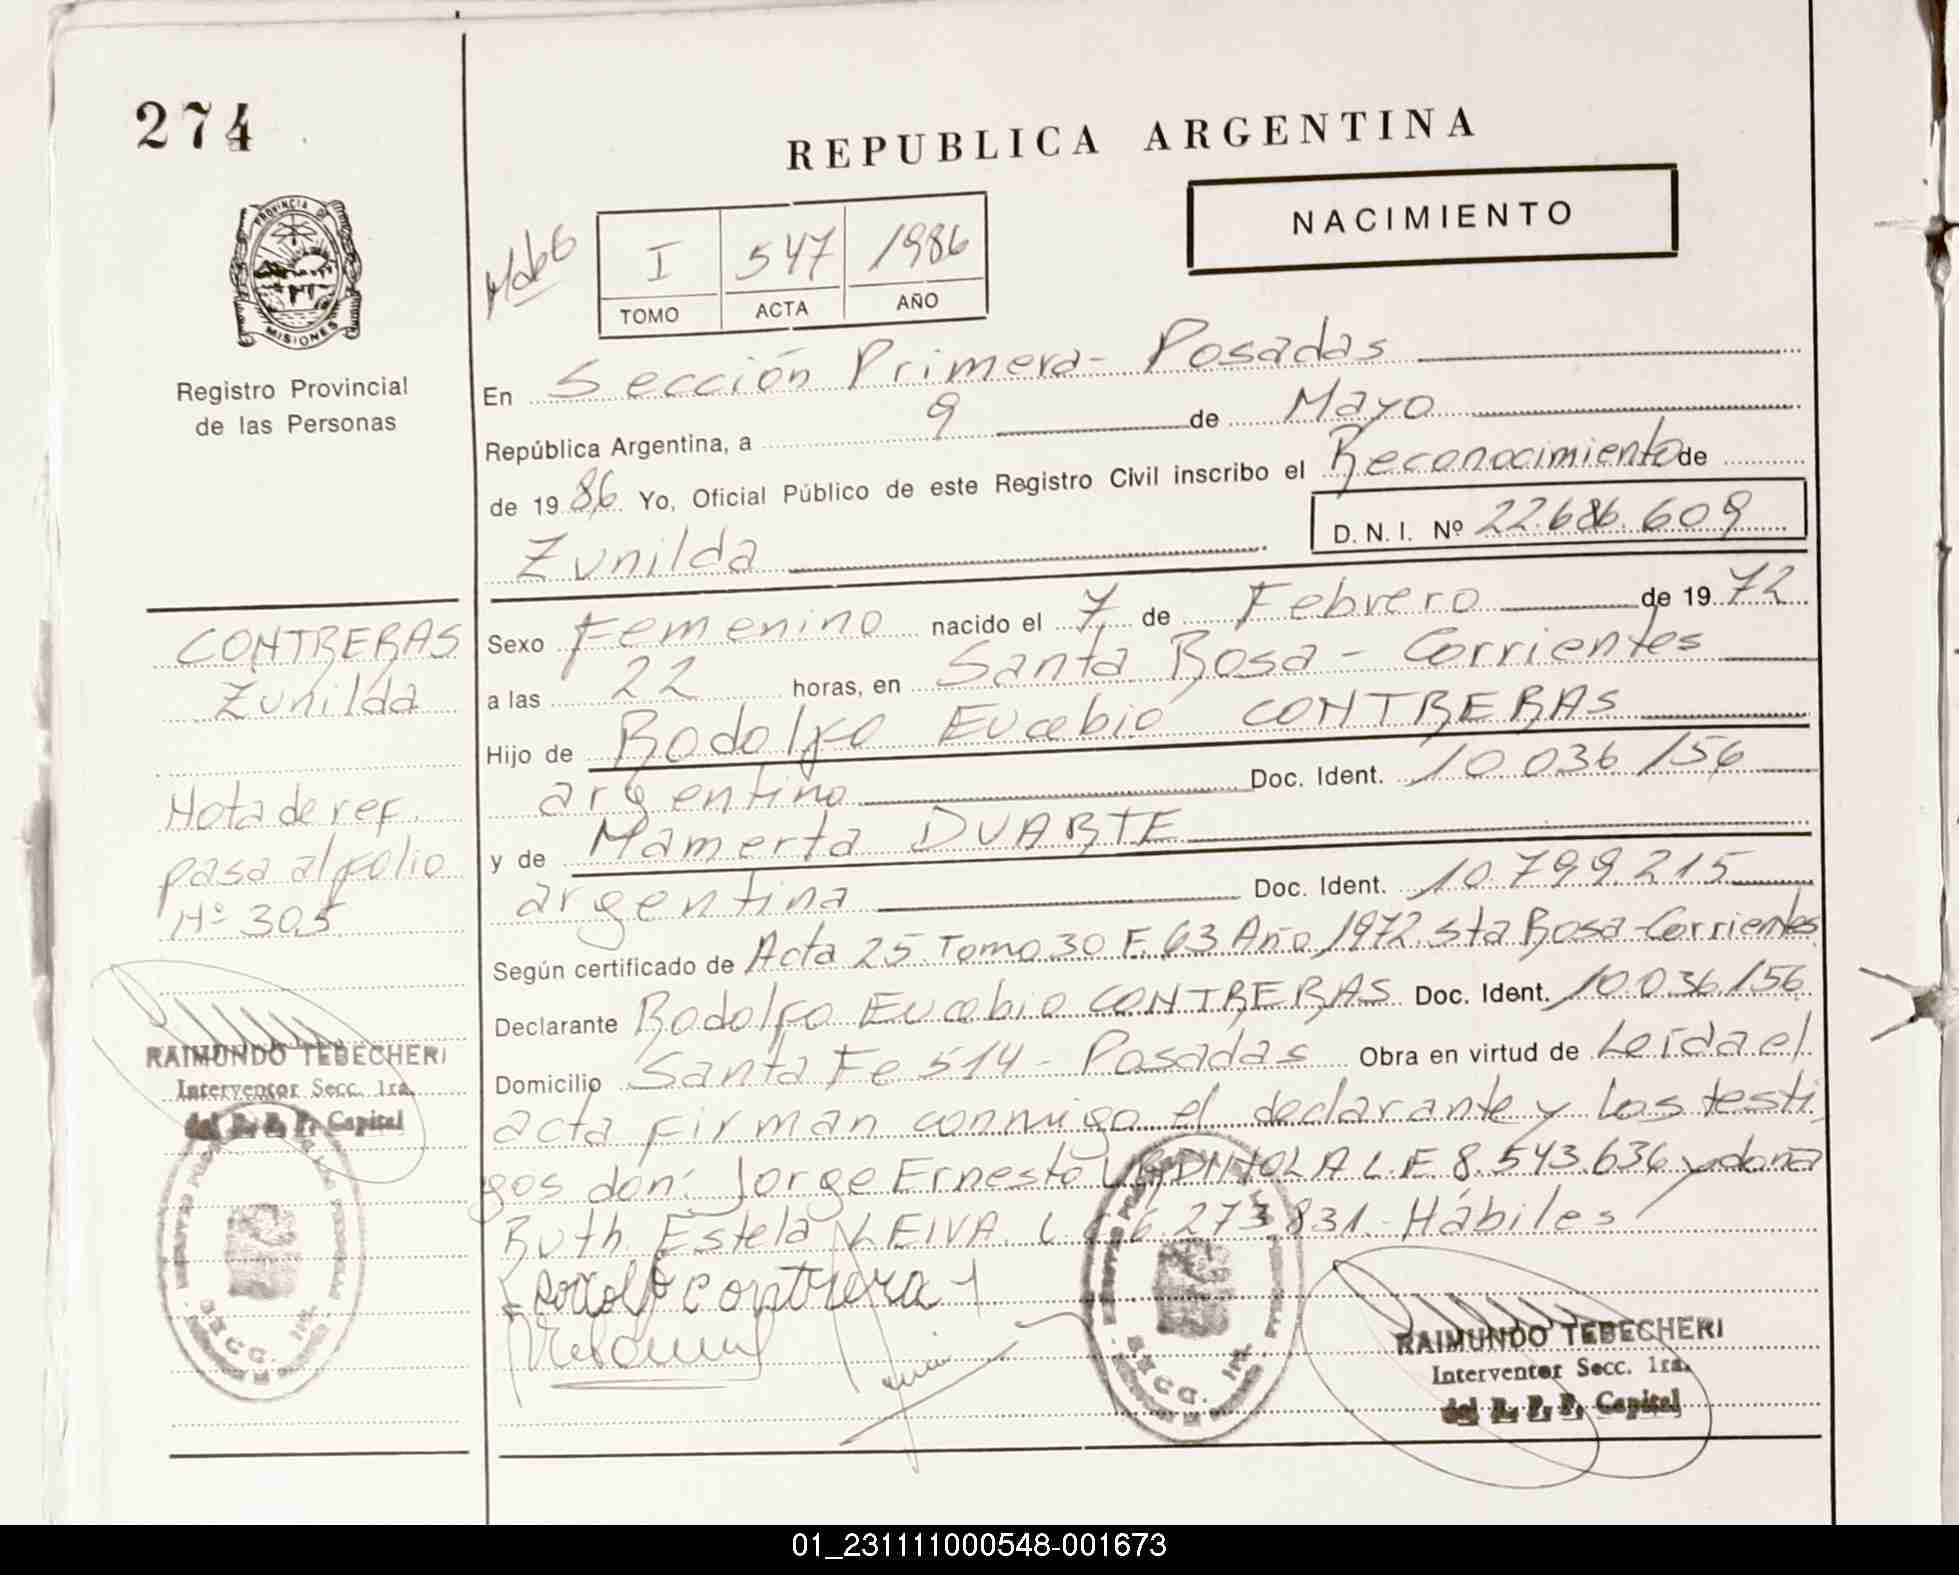 274
REPUBLICA ARGENTINA
NACIMIENTO
PROVINCIA DE
MISIONES
Registro Provincial
de las Personas
I 547 1986
TOMO ACTA AÑO
En Sección Primera - Posadas
República Argentina, a 9 de Mayo
de 1986 Yo, Oficial Público de este Registro Civil inscribo el Reconocimiento de
Zunilda D. N. I. Nº 22.686.609
Sexo Femenino nacido el 7 de Febrero de 1972
a las 22 horas, en Santa Rosa - Corrientes
Hijo de Rodolfo Eucebio CONTRERAS
argentino Doc. Ident. 10.036.156
y de Mamerta DUARTE
argentina Doc. Ident. 10.799.215
Según certificado de Acta 25 Tomo 30 F. 63 Año 1972 Sta Rosa - Corrientes
Declarante Rodolfo Eucebio CONTRERAS Doc. Ident. 10.036.156
Domicilio Santa Fe 514 - Posadas Obra en virtud de Leída el
acta firman conmigo el declarante y los testi
gos don: Jorge Ernesto L.E 8.543.636 y doña
Ruth Estela LEIVA L.C 6.273.831.- Hábiles
Rodolfo contrera
RAIMUNDO TEBECHERI
Interventor Secc. 1ra.
del R. P. P. Capital
SECC. 1ra.
CONTRERAS
Zunilda
Nota de ref.
pasa al folio
Nº 305
RAIMUNDO TEBECHERI
Interventor Secc. 1ra.
del R. P. P. Capital
SECC. 1ra.
01_231111000548-001673